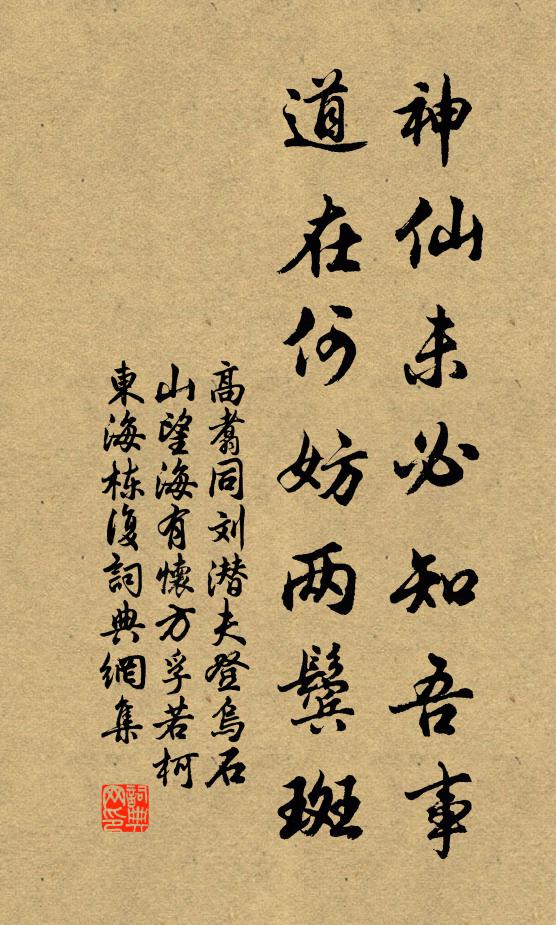 神仙未必知吾事
道在何妨两鬓斑
高翥同刘潜夫登乌石
山望海有懷方孚若柯
東海栋復詞典網集
詞典网印